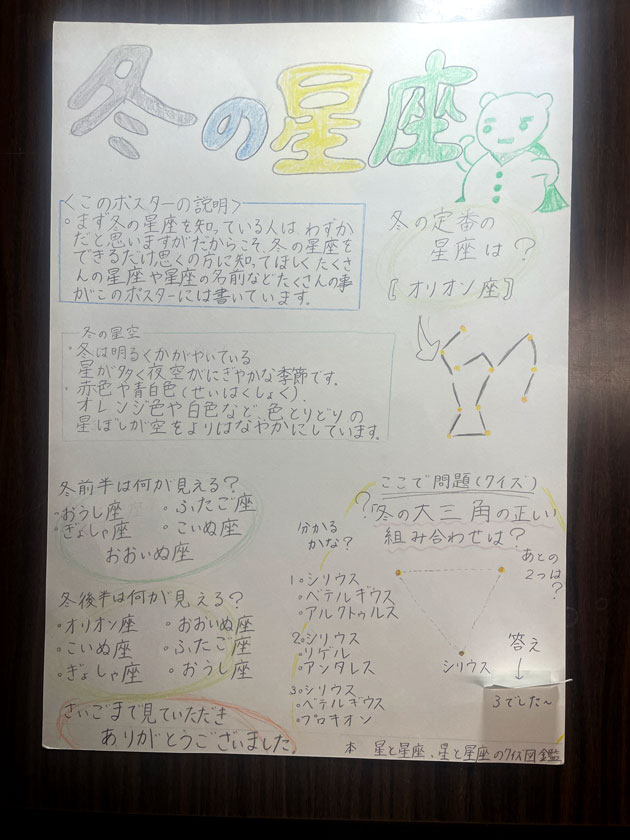 冬の星座
〈このポスターの説明〉
・まず冬の星座を知っている人は、わずか
だと思いますがだからこそ、冬の星座を
できるだけ思くの方に知ってほしくたくさ
んの星座や星座の名前などたくさんの事
がこのポスターには書いています。
冬の定番の
星座は?
〖オリオン座〗
冬の星空
・冬は明るくかがやいている
星が多く夜空がにぎやかな季節です.
・赤色や青白色(せいはくしょく).
オレンジ色や白色など、色とりどりの
星ぼしが空をよりはなやかにしています.
冬前半は何が見える?
・おうし座
・ふたご座
・ぎょしゃ座
・こいぬ座
おおいぬ座
冬後半は何が見える?
・オリオン座
・おおいぬ座
・こいぬ座
・ふたご座
・ぎょしゃ座
・おうし座
さいごまで見ていただき
ありがとうございました。
ここで問題(クイズ)
?「冬の大三角の正しい
組み合わせは?
分かる
かな?
あとの
2つは
?
1.シリウス
・ベテルギウス
・アルクトゥルス
2.シリウス
・リゲル
・アンタレス
3.シリウス
・ベテルギウス
・プロキオン
シリウス
答え
↓
3でした〜
本 星と星座、星と星座のクイズ図鑑